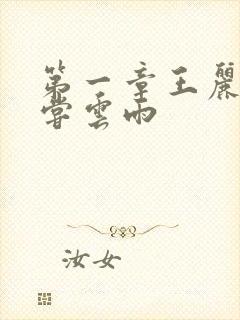 第一章王麗
嘗雲雨
汝女